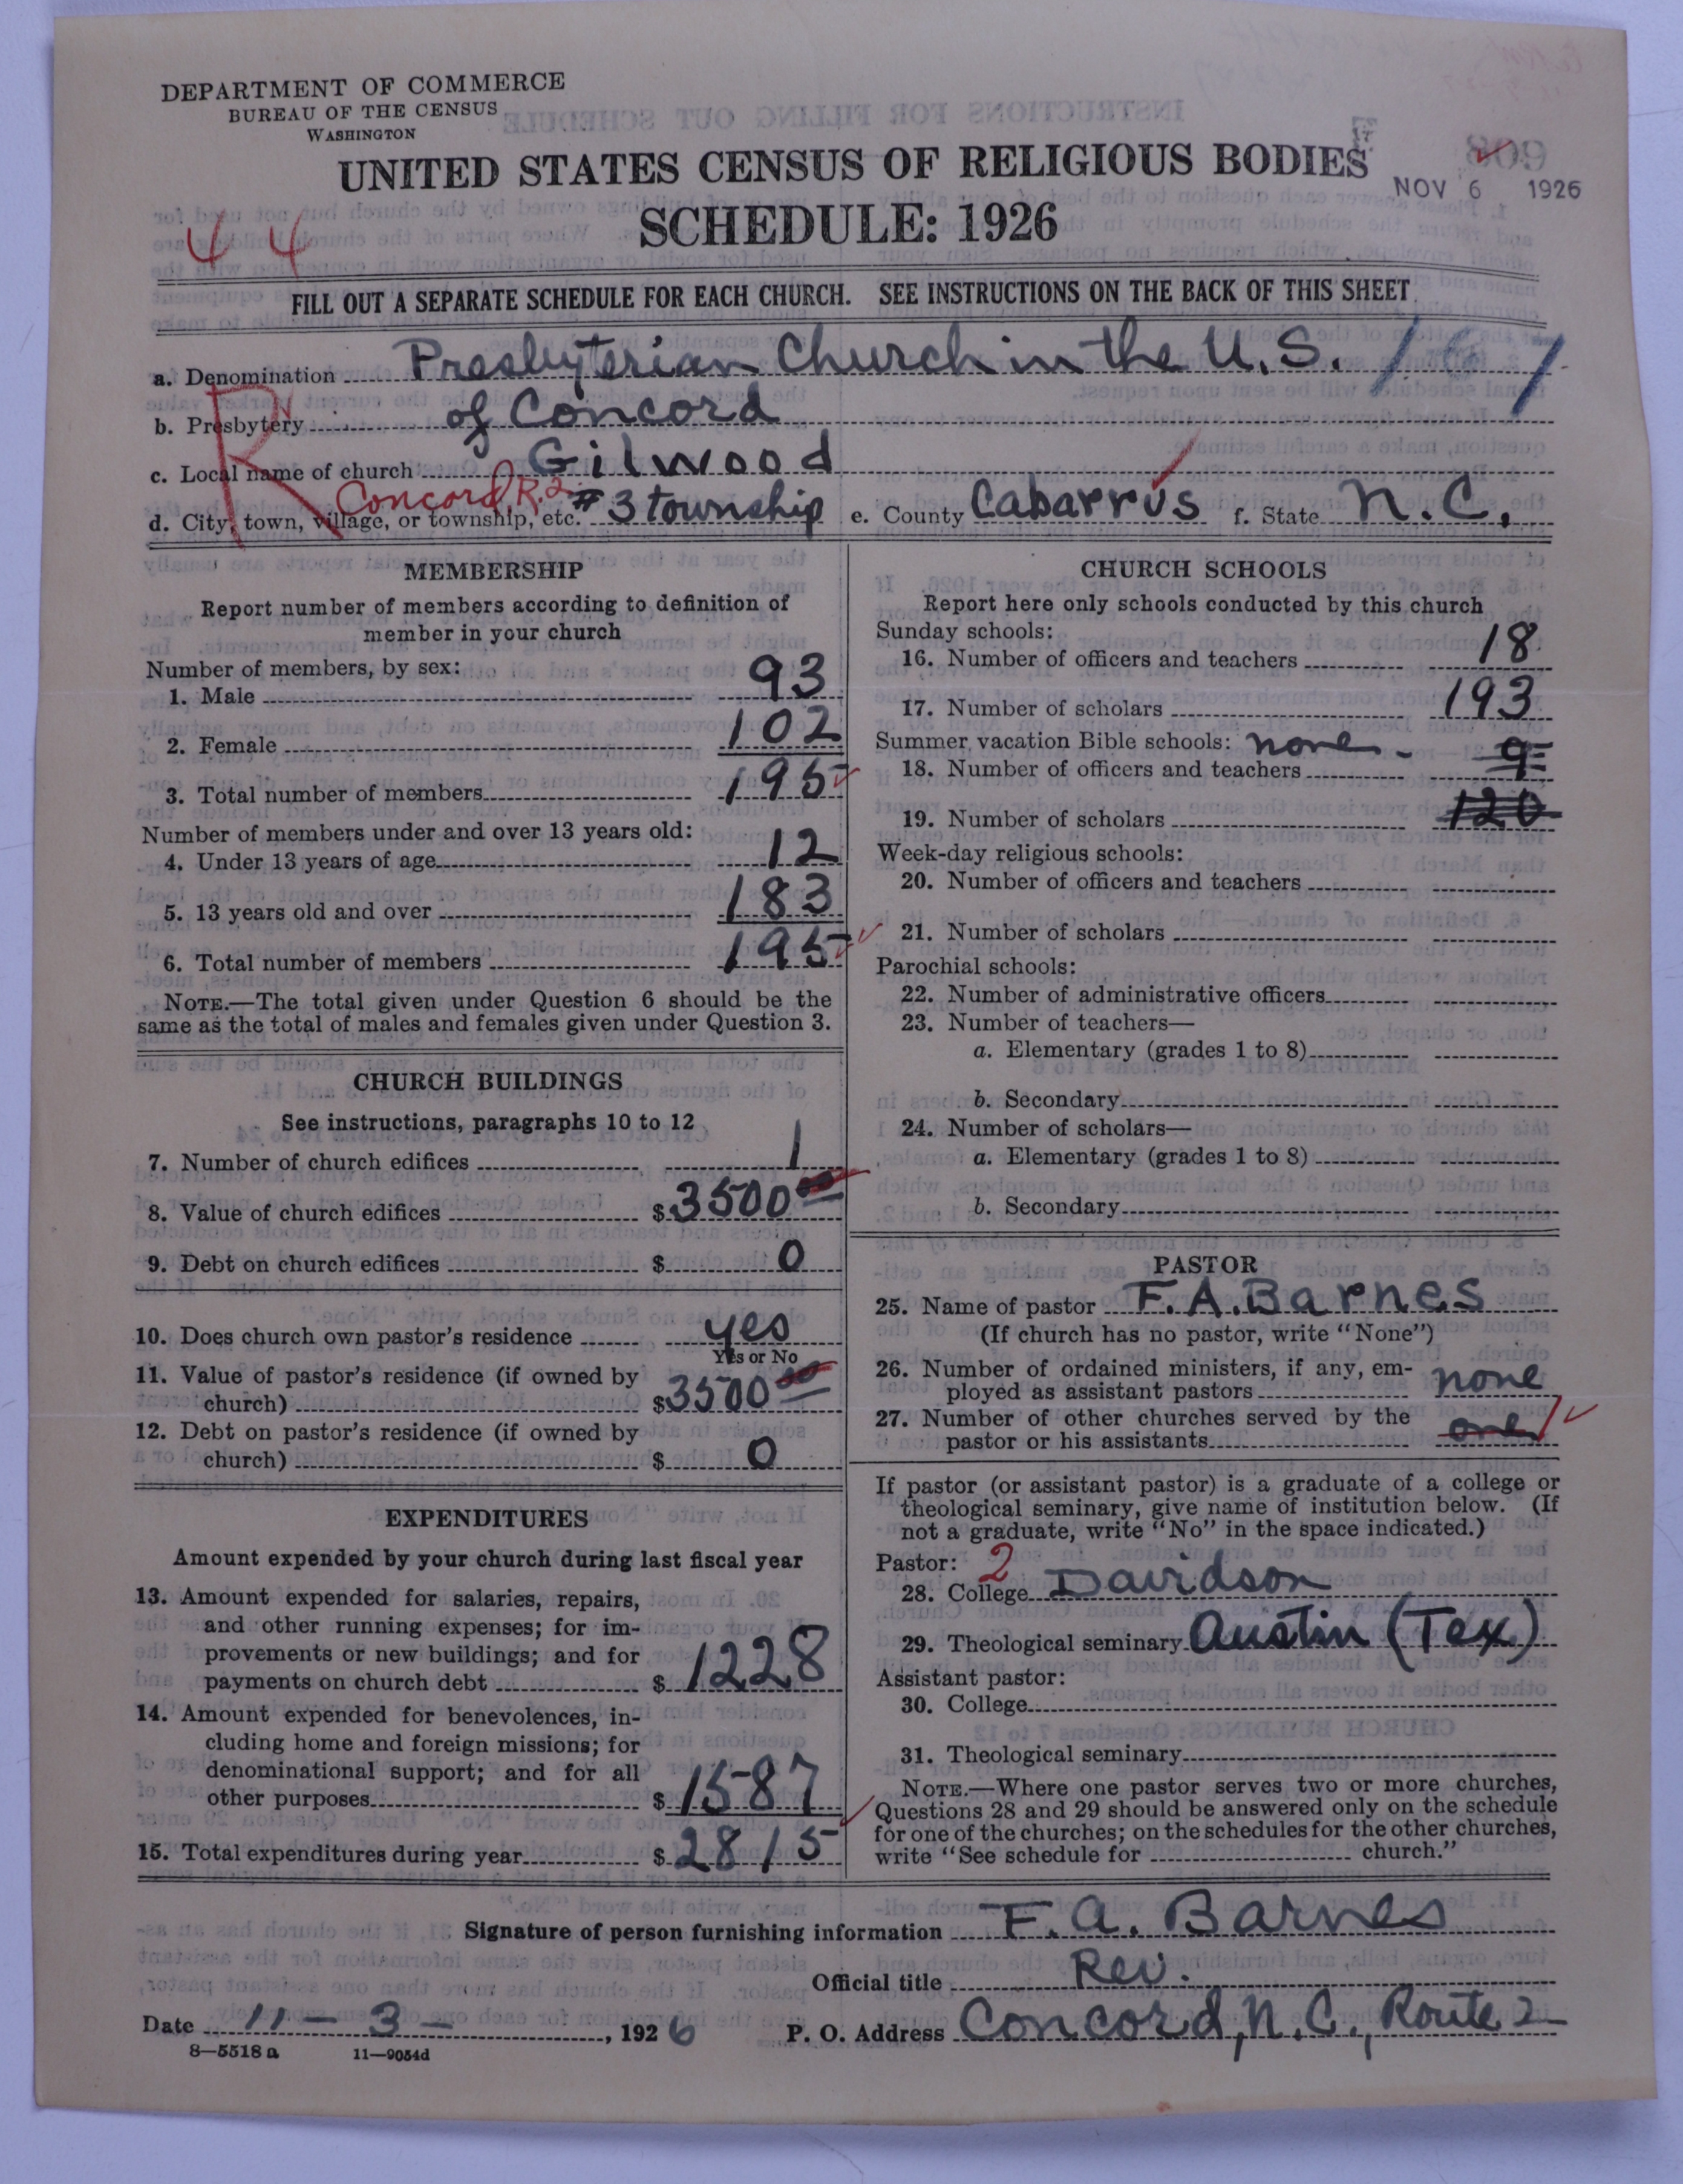 DEPARTMENT OF COMMERCE
BUREAU OF THE CENSUS
WASHINGTON
UNITED STATES CENSUS OF RELIGIOUS BODIES
NOV 6 1926
SCHEDULE: 1926
44
FILL OUT A SEPARATE SCHEDULE FOR EACH CHURCH. SEE INSTRUCTIONS ON THE BACK OF THIS SHEET
a. Denomination Presbyterian Church in the U.S.
b. Presbytery of Concord
c. Local name of church Gilwood
R Concord R.2
d. City, town, village, or township, etc. #3 township e. County Cabarrus f. State N.C.
MEMBERSHIP
Report number of members according to definition of
member in your church
Number of members, by sex:
1. Male 93
2. Female 102
3. Total number of members 195
Number of members under and over 13 years old:
4. Under 13 years of age 12
5. 13 years old and over 183
6. Total number of members 195
NOTE.—The total given under Question 6 should be the
same as the total of males and females given under Question 3.
CHURCH BUILDINGS
See instructions, paragraphs 10 to 12
7. Number of church edifices 1
8. Value of church edifices $3500 00
9. Debt on church edifices $ 0
10. Does church own pastor's residence yes
Yes or No
11. Value of pastor's residence (if owned by
church) $3500 00
12. Debt on pastor's residence (if owned by
church) $ 0
EXPENDITURES
Amount expended by your church during last fiscal year
13. Amount expended for salaries, repairs,
and other running expenses; for im-
provements or new buildings; and for
payments on church debt $ 1228
14. Amount expended for benevolences, in-
cluding home and foreign missions; for
denominational support; and for all
other purposes $ 1587
15. Total expenditures during year $ 2815
CHURCH SCHOOLS
Report here only schools conducted by this church
Sunday schools:
16. Number of officers and teachers 18
17. Number of scholars 193
Summer vacation Bible schools: none -
18. Number of officers and teachers 9
19. Number of scholars 120
Week-day religious schools:
20. Number of officers and teachers
21. Number of scholars
Parochial schools:
22. Number of administrative officers
23. Number of teachers—
a. Elementary (grades 1 to 8)
b. Secondary
24. Number of scholars—
a. Elementary (grades 1 to 8)
b. Secondary
PASTOR
25. Name of pastor F. A. Barnes
(If church has no pastor, write "None")
26. Number of ordained ministers, if any, em-
ployed as assistant pastors none
27. Number of other churches served by the
pastor or his assistants one 1
If pastor (or assistant pastor) is a graduate of a college or
theological seminary, give name of institution below. (If
not a graduate, write "No" in the space indicated.)
Pastor: 2
28. College Davidson
29. Theological seminary Austin (Tex)
Assistant pastor:
30. College
31. Theological seminary
NOTE.—Where one pastor serves two or more churches,
Questions 28 and 29 should be answered only on the schedule
for one of the churches; on the schedules for the other churches,
write "See schedule for church."
Signature of person furnishing information F. A. Barnes
Official title Rev.
Date 11 - 3 -, 1926 P. O. Address Concord, N.C., Route 2
8—5518 a 11—9054d